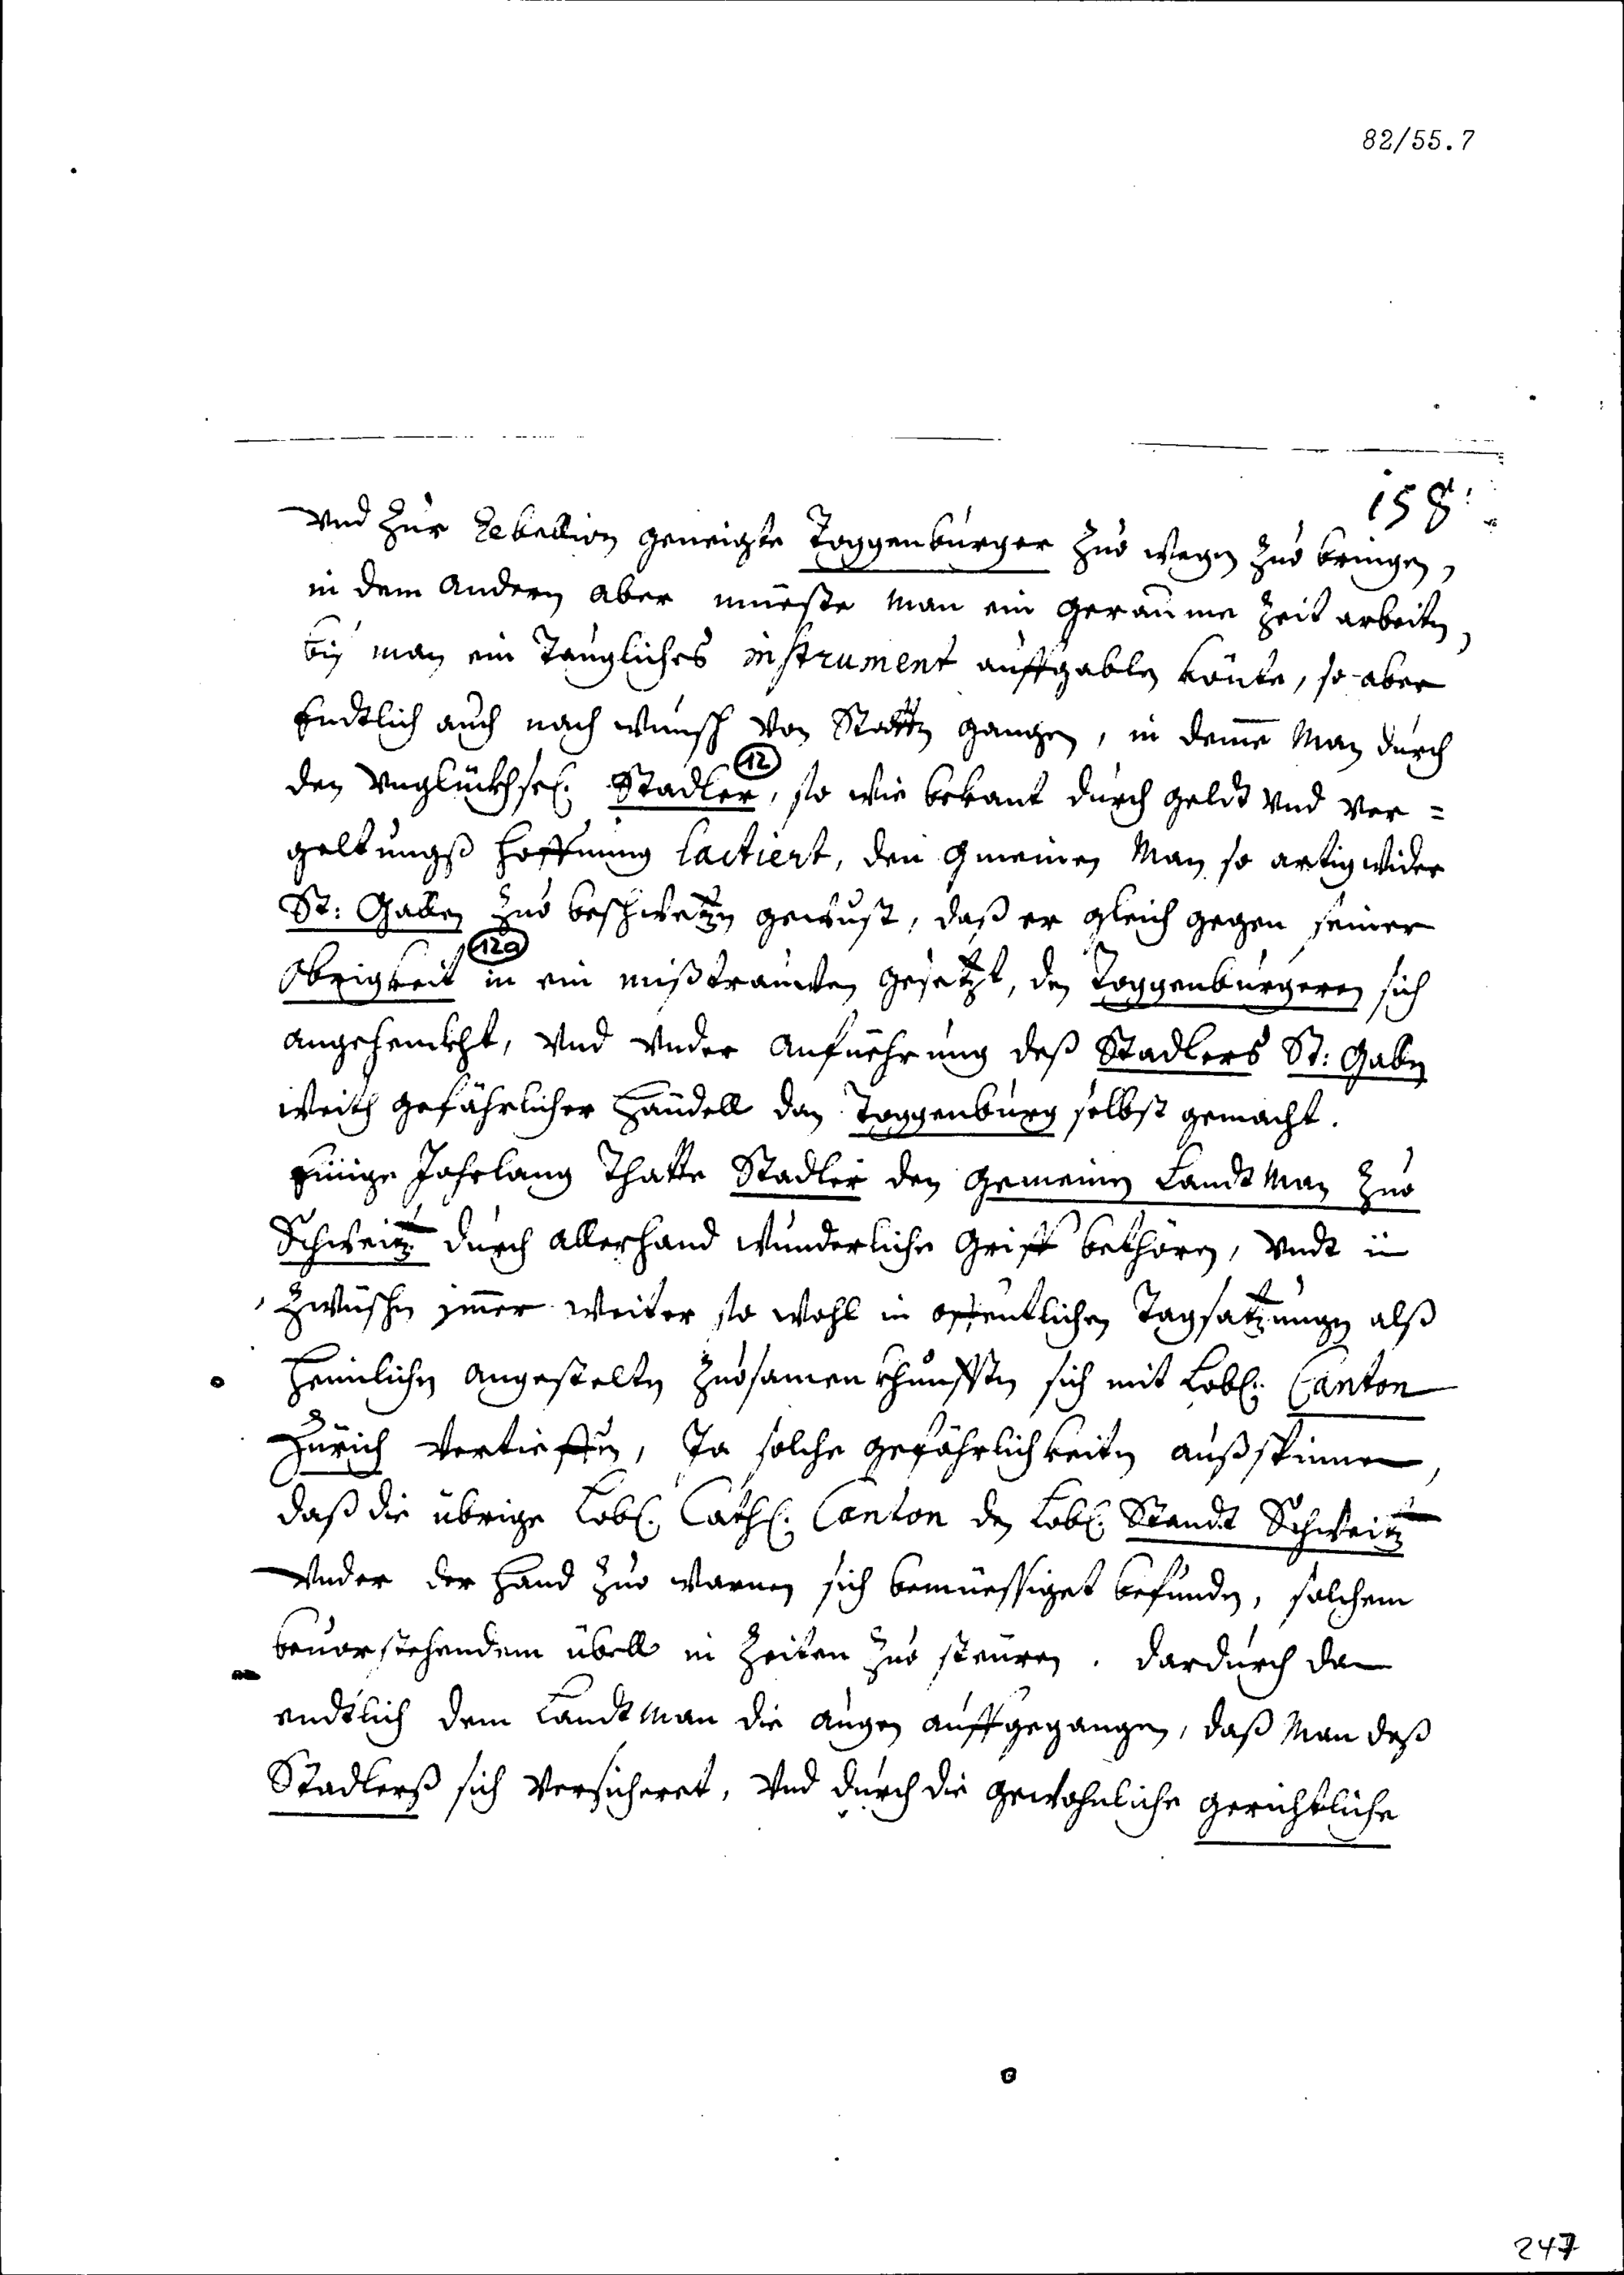 82/55.7
158
Vnd Zur Rebellion geneigte Toggenburger Zuo wegen Zuo bringen,
in dem Andern aber müeste Man ein geraume Zeit arbeiten,
biß man ein Taugliches instrument auffgablen könte, so aber
Endtlich auch nach wunsch von Statten gangen, in deme Man durch
12
den Vnglückhsel. Stadler, so wie bekant durch geldt Vnd Ver=
geltungß hoffnung lactiert, den gmeinen Man so artig wider
St: Gallen Zuo beschwetzen gewust, daß er gleich gegen seiner
12a
Obrigkeit in ein mißtrauwen gesetzt, den Toggenburgeren sich
angehenckht, Vnd Vnder Anfüehrung deß Stadlers St: Gallen
weith gefährlicher Händell dan Toggenburg selbst gemacht.
Einige Jahrlang Thatte Stadler den Gemeinen Landt Man Zuo
Schweitz durch Allerhand wunderliche Griff bethören, Vndt in
Zwüschen jmer weiter so wohl in offentlichen Tagsatzungen alß
Heimlichen angestelten Zuosamenkhunfften sich mit Lobl: Canton
Zürich Vertieffen, Ja solche gefährlichkeiten außspinnen,
daß die übrige Lobl. Cath: Canton den Lobl. Standt Schweitz
Vnder der Hand Zuo warnen sich bemüessiget befunden, solchem
beuorstehendem übell in Zeiten Zuo steuren. dardurch dan
endtlich dem Landt Man die augen auffgegangen, daß Man deß
Stadlerß sich Versicheret, Vnd durch die gewohnliche gerichtliche
247